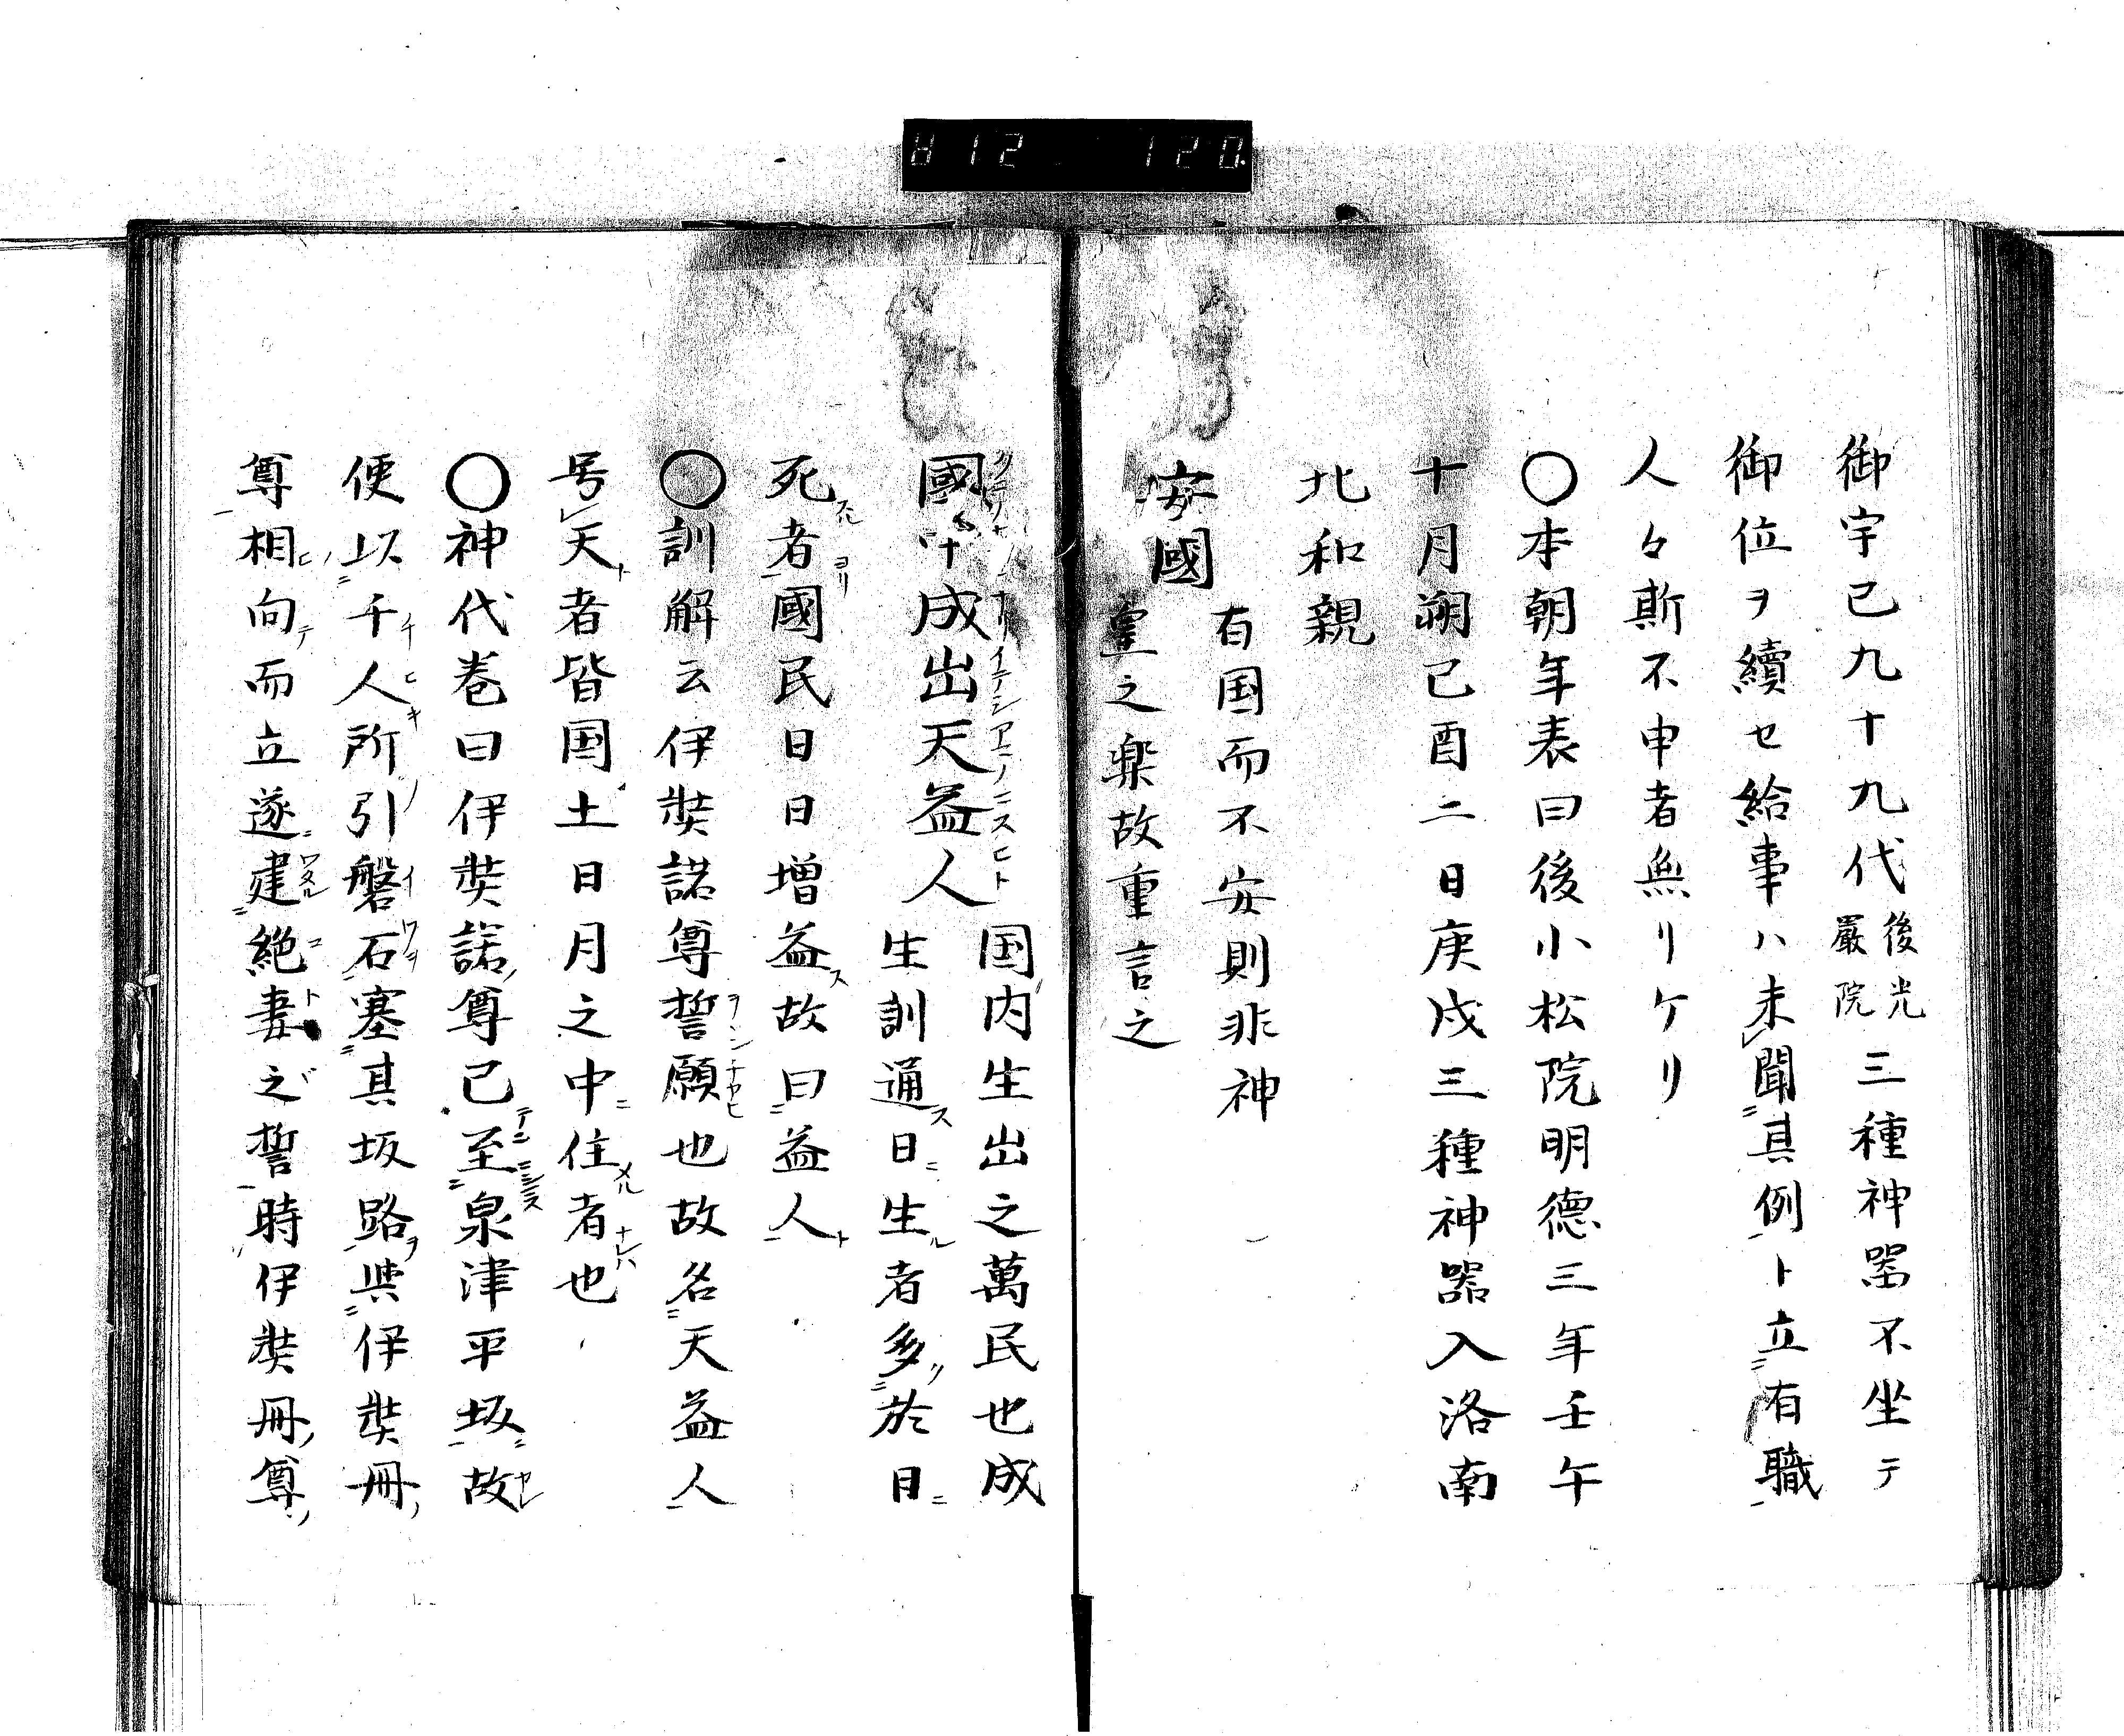 812 120
御宇已九十九代
後光
嚴院
三種神器不坐テ
御位ヲ續セ給事ハ未聞其例ト立有職
人々斯不申者無リケリ
〇本朝年表曰後小松院明德三年壬午
十月朔己酉二日庚戌三種神器入洛南
北和親
安國
有国而不安則非神
皇之樂故重言之
國中成出天益人
国内生出之萬民也成
生訓通ス日ニ生ル者多リ於日
死者ヨリ國民日日増益ス故曰益人ト
〇訓解云伊奘諾尊誓願也故名天益人
号天ト者皆国土日月之中ニ住メル者ナレハ也
〇神代巻曰伊奘諾尊已至泉津平坂故
便以千人所引磐石塞其坂路ヲ與伊奘冊
尊相向テ而立遂建絶妻之誓時伊奘冊尊